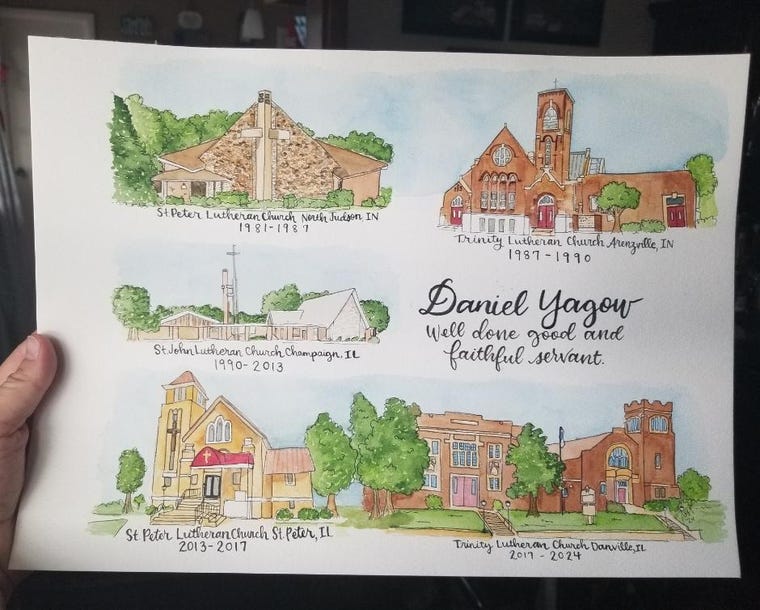 St Peter Lutheran Church North Judson, IN
1981-1987
Trinity Lutheran Church Arenzville, IN
1987-1990
St John Lutheran Church Champaign, IL
1990-2013
Daniel Yagow
Well done good and
faithful servant.
St Peter Lutheran Church St. Peter, IL
2013-2017
Trinity Lutheran Church Danville, IL
2017-2024